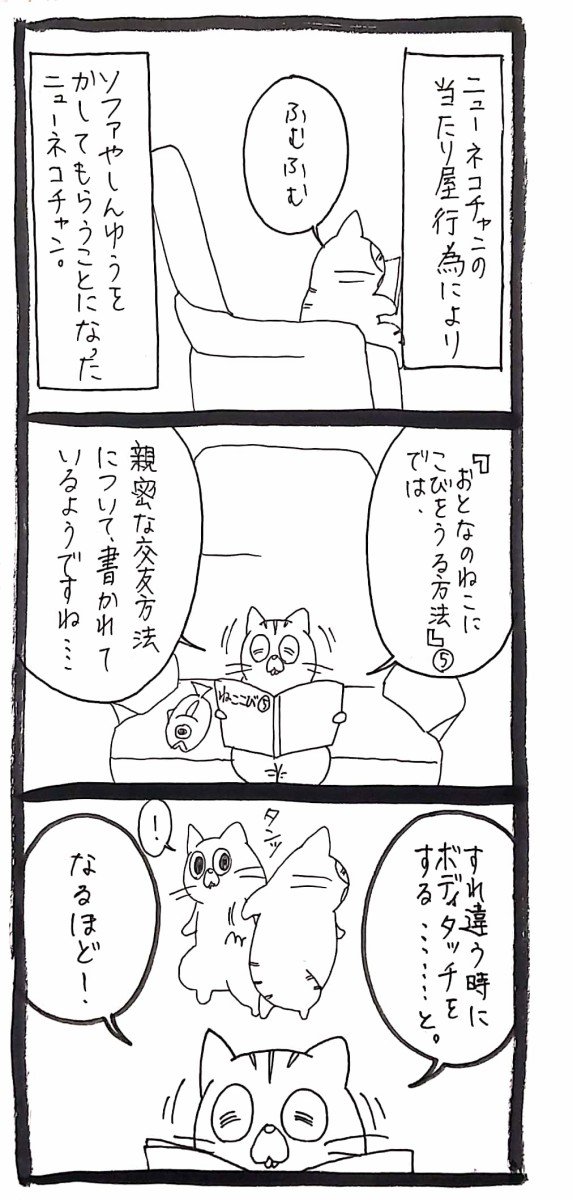 ニューネコチャンの
当たり屋行為により
ふむふむ
ソファやしんゆうを
かしてもらうことになった
ニューネコチャン。
『おとなのねこに
こびをうる方法』⑤
では、
親密な交友方法
について、書かれて
いるようですね……
ねここび⑤
すれ違う時に
ボディタッチを
する………と。
タンッ
！
なるほど！